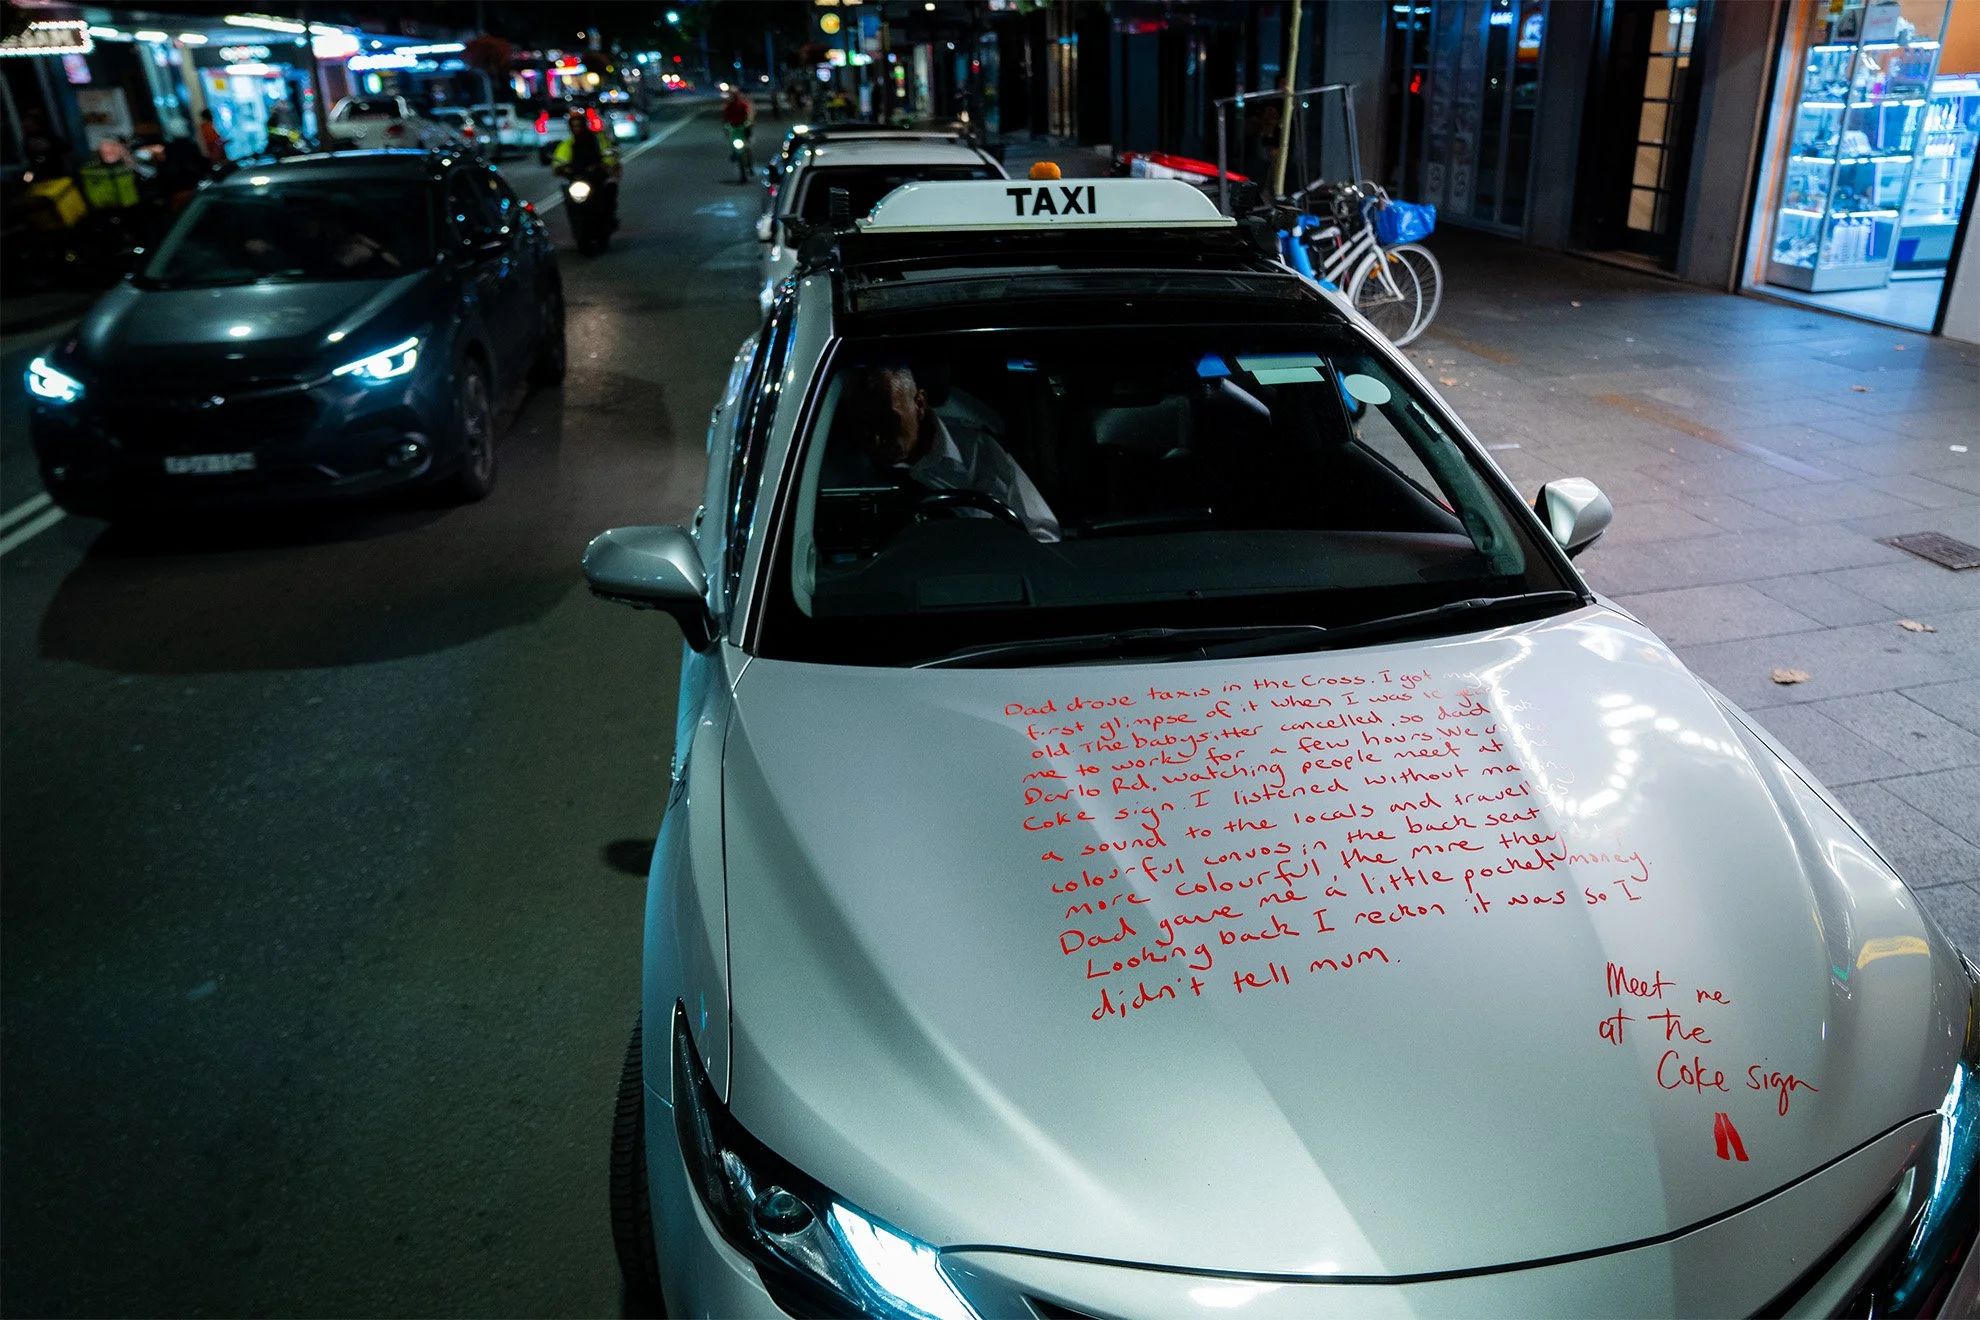 TAXI
Dad drove taxis in the Cross. I got my
first glimpse of it when I was 10 years
old The babysitter cancelled, so dad took
me to work for a few hours. We
Darlo Rd, watching people meet at the
Coke sign. I listened without making
a sound to the locals and travellers
colourful convos in the back seat
more colourful, the more they
Dad gave me a little pocket money.
Looking back I reckon it was so I
didn't tell mum.
Meet me
at the
Coke sign